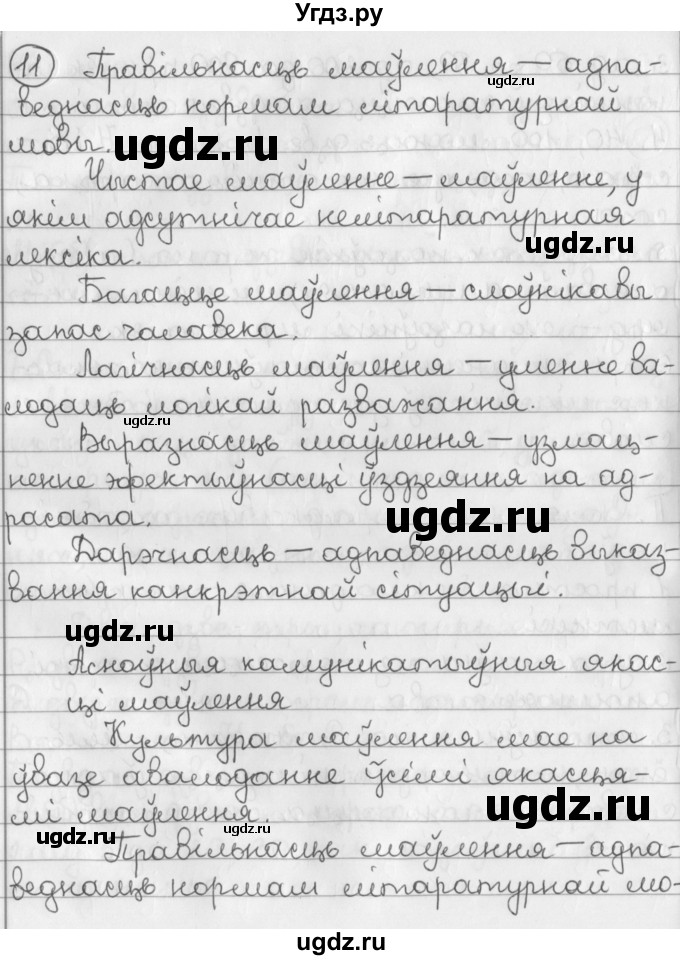 Угдз.ру
11 Правільнасць маўлення — адпа-
веднасць нормам літаратурнай
мовы.
Чыстае маўленне — маўленне, у
якім адсутнічае нелітаратурная
лексіка.
Багацце маўлення — слоўнікавы
запас чалавека.
Лагічнасць маўлення — уменне ва-
лодаць логікай разважання.
Выразнасць маўлення — узмац-
ненне эфектыўнасці ўздзеяння на ад-
расата.
Дарэчнасць — адпаведнасць выказ-
вання канкрэтнай сітуацыі.
Асноўныя камунікатыўныя якас-
ці маўлення
Культура маўлення мае на
ўвазе авалоданне ўсімі якасця-
мі маўлення.
Правільнасць маўлення — адпа-
веднасць нормам літаратурнай мо-
ugdz.ru
ugdz.ru
ugdz.ru
ugdz.ru
ugdz.ru
ugdz.ru
ugdz.ru
ugdz.ru
ugdz.ru
ugdz.ru